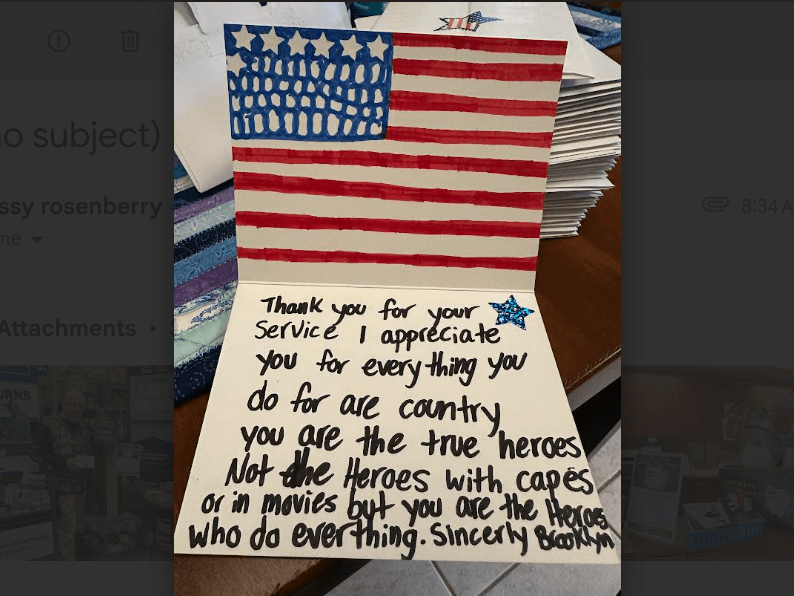 o subject)
ssy rosenberry
8:34 A
me
Attachments •
URNS
Thank you for your
Service I appreciate
you for everything you
do for are country
you are the true heroes
Not the Heroes with capes
or in movies but you are the Heros
who do everthing. Sincerly Brooklyn